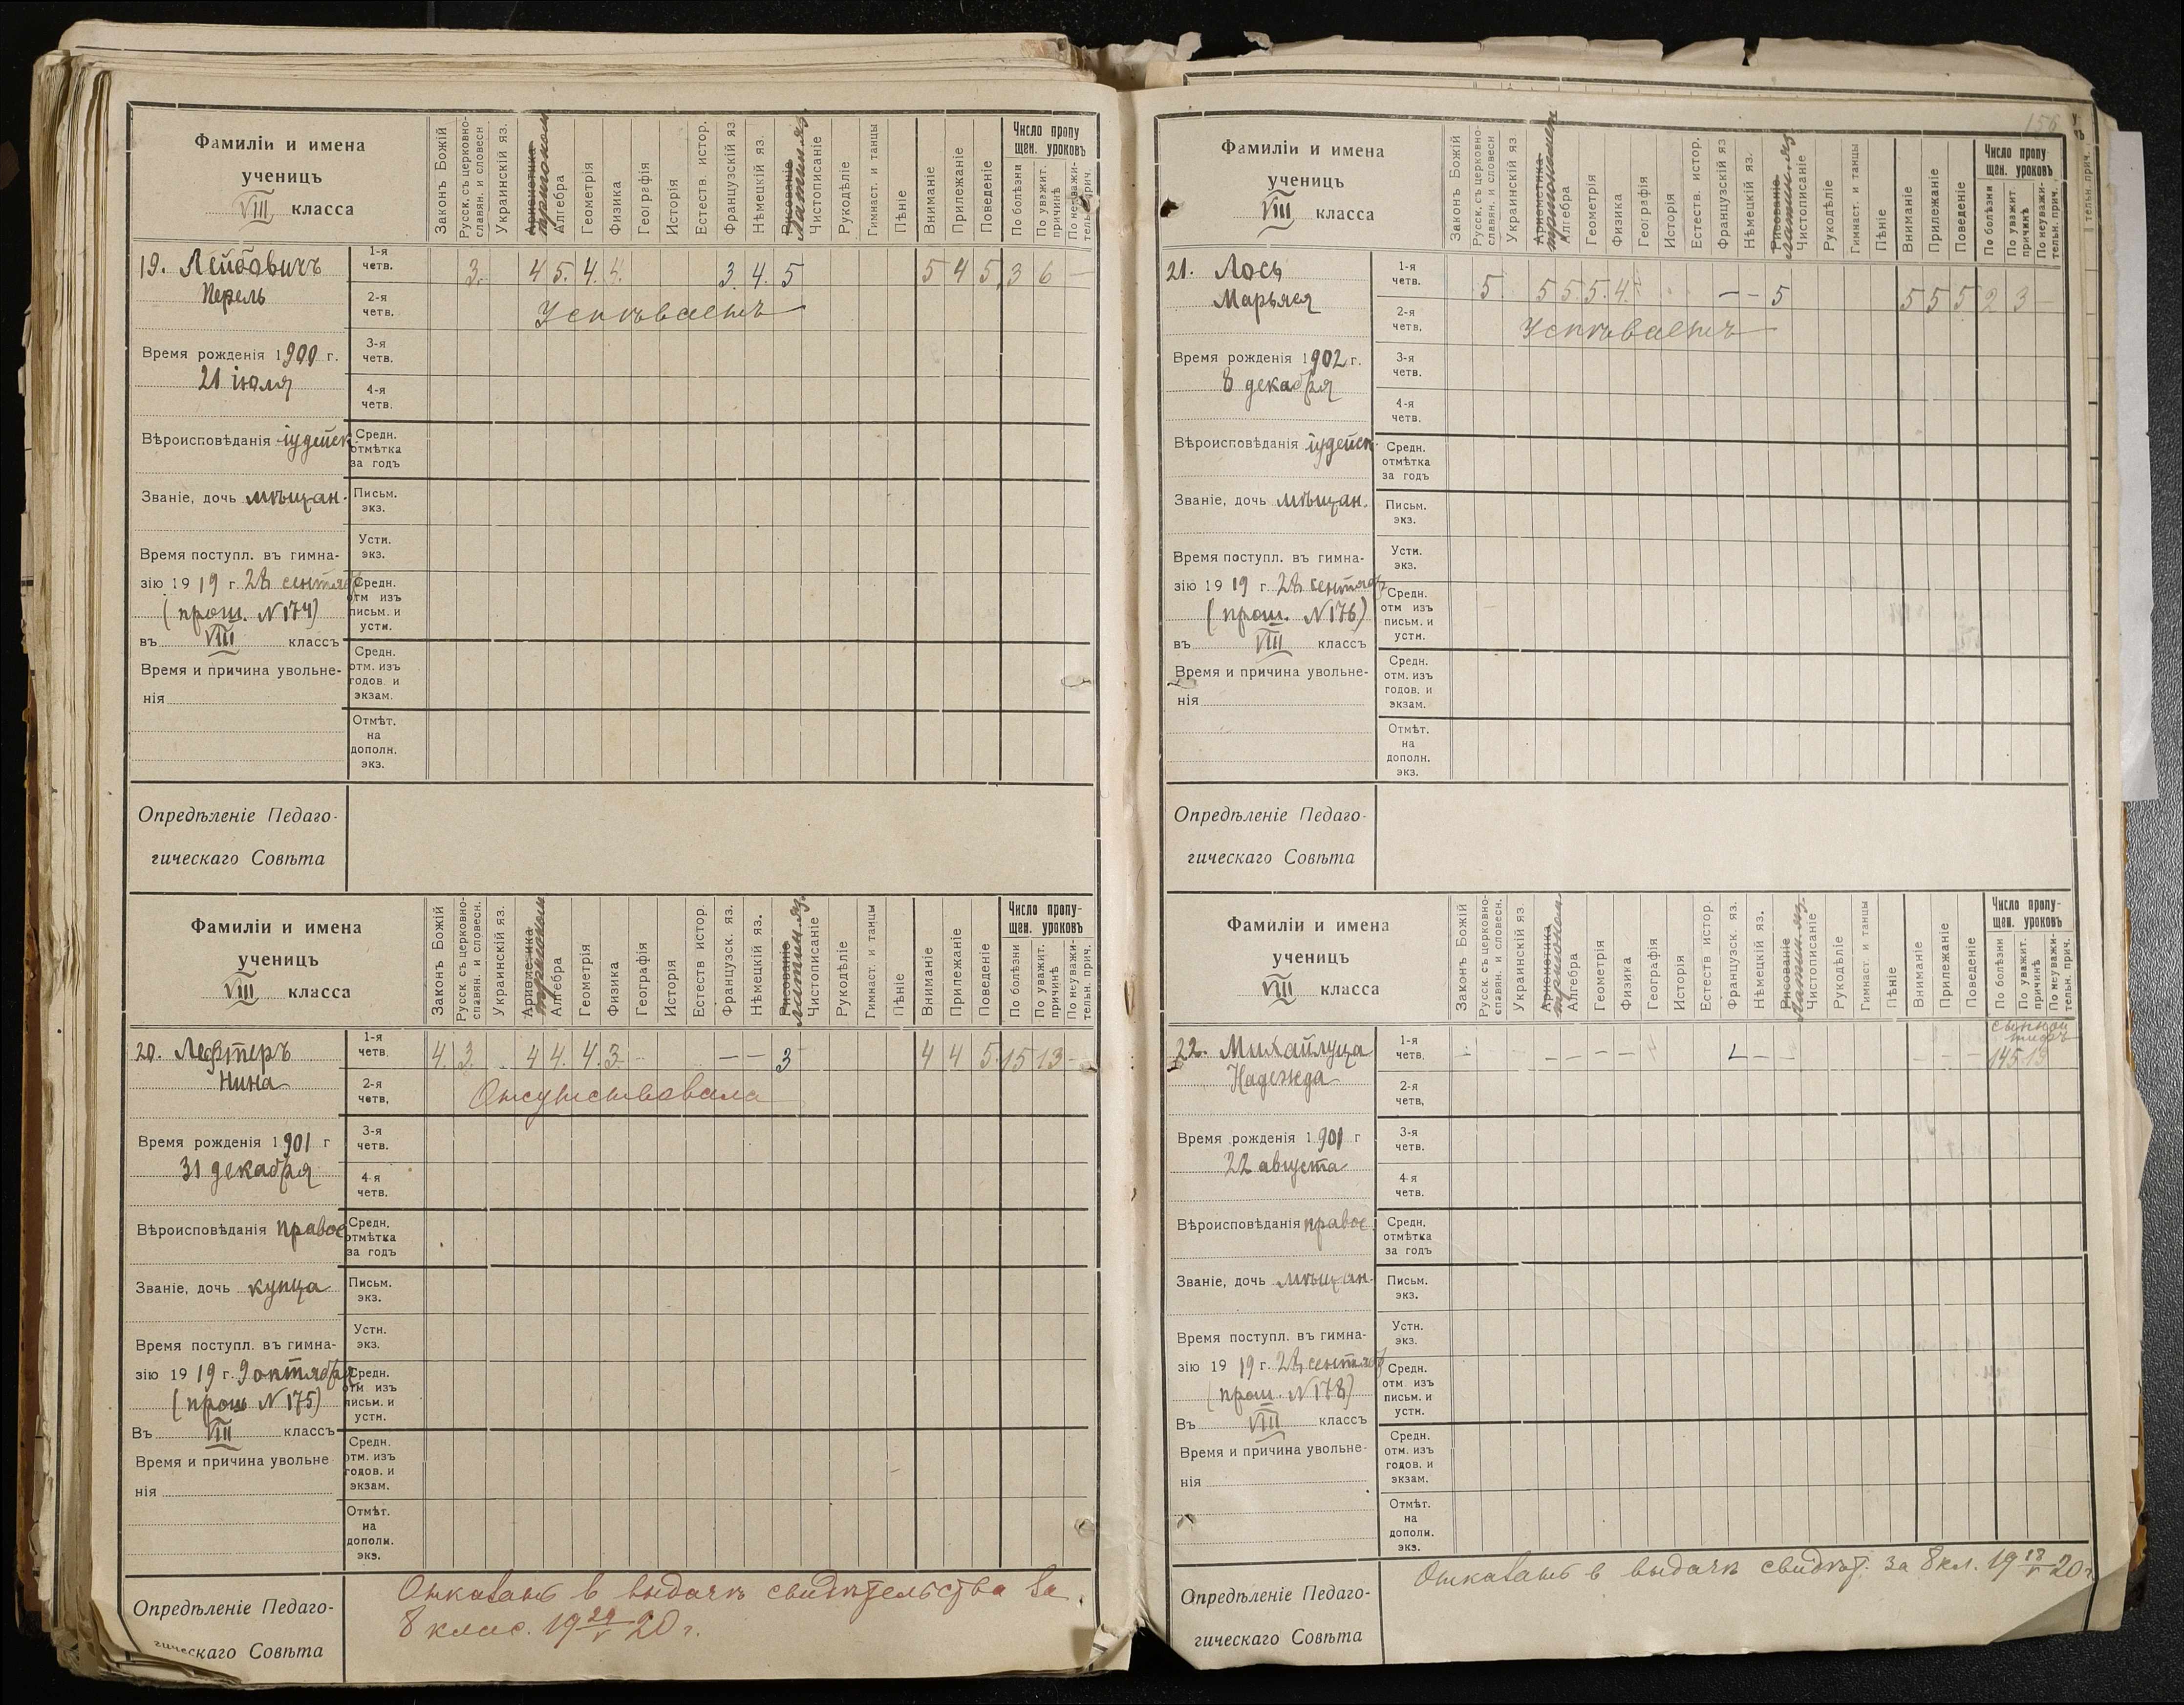 156
Фамиліи и имена
ученицъ
VIII класса
Законъ Божій
Русск. съ церковно-
славян. и словесн
Украинскій яз.
Ариѳметика
тригоном
Алгебра
Геометрія
Физика
Географія
Исторія
Естеств. истор.
Французскій яз
Нѣмецкій яз.
Рисованіе
Латин. яз.
Чистописаніе
Рукодѣліе
Гимнаст. и танцы
Пѣніе
Вниманіе
Прилежаніе
Поведеніе
Число пропу
щен. уроковъ
По болѣзни
По уважит.
причинѣ
По неуважи-
тельн. прич.
19. Лейбовичъ
Перель
1-я
четв.
3. 4 5. 4. 4. 3. 4. 5 5 4 5. 3 6 —
2-я
четв.
Успѣваетъ
Время рожденія 1900 г.
21 іюля
3-я
четв.
4-я
четв.
Вѣроисповѣданія іудейск.
Средн.
отмѣтка
за годъ
Званіе, дочь мѣщан.
Письм.
экз.
Время поступл. въ гимна-
зію 1919 г. 28 сентяб
(прош. N 174)
въ VIII классъ
Устн.
экз.
Средн.
отм изъ
письм. и
устн.
Время и причина увольне-
нія
Средн.
отм. изъ
годов. и
экзам.
Отмѣт.
на
дополн.
экз.
Опредѣленіе Педаго-
гическаго Совѣта
Фамиліи и имена
ученицъ
VIII класса
Законъ Божій
Русск. съ церковно-
славян. и словесн.
Украинскій яз.
Ариѳметика
тригоном
Алгебра
Геометрія
Физика
Географія
Исторія
Естеств истор.
Французск. яз.
Нѣмецкій яз.
Рисованіе
Латин. яз.
Чистописаніе
Рукодѣліе
Гимнаст. и танцы
Пѣніе
Вниманіе
Прилежаніе
Поведеніе
Число пропу-
щен. уроковъ
По болѣзни
По уважит.
причинѣ
По неуважи-
тельн. прич.
20. Лефтеръ
Нина
1-я
четв.
4. 3. 4 4. 4. 3. — — 3 4 4 5. 15 13 —
2-я
четв.
Отсутствовала
Время рожденія 1901 г
31 декабря
3-я
четв.
4-я
четв.
Вѣроисповѣданія правос
Средн.
отмѣтка
за годъ
Званіе, дочь купца
Письм.
экз.
Время поступл. въ гимна-
зію 1919 г. 9 октября
(прош N 175)
Въ VIII классъ
Устн.
экз.
Средн.
отм изъ
письм. и
устн.
Время и причина увольне
нія
Средн.
отм. изъ
годов. и
экзам.
Отмѣт.
на
дополн.
экз.
Опредѣленіе Педаго-
гическаго Совѣта
Отказать в выдачѣ свидѣтельства за
8 клас. 19 29/V 20 г.
Фамиліи и имена
ученицъ
VIII класса
Законъ Божій
Русск. съ церковно-
славян. и словесн
Украинскій яз
Ариѳметика
тригономет
Алгебра
Геометрія
Физика
Географія
Исторія
Естеств. истор.
Французскій яз
Нѣмецкій яз.
Рисованіе
Латин. яз.
Чистописаніе
Рукодѣліе
Гимнаст. и танцы
Пѣніе
Вниманіе
Прилежаніе
Поведеніе
Число пропу
щен. уроковъ
По болѣзни
По уважит
причинѣ
По неуважи-
тельн. прич.
21. Лось
Марьяся
1-я
четв.
5. 5 5. 5. 4. — — 5 5 5 5 2 3 —
2-я
четв.
Успѣваетъ
Время рожденія 1902 г.
8 декабря
3-я
четв.
4-я
четв.
Вѣроисповѣданія іудейск.
Средн.
отмѣтка
за годъ
Званіе, дочь мѣщан.
Письм.
экз.
Время поступл. въ гимна-
зію 1919 г 28 сентяб
(прош. N 176)
въ VIII классъ
Устн.
экз.
Средн.
отм изъ
письм. и
устн.
Время и причина увольне-
нія
Средн.
отм. изъ
годов. и
экзам.
Отмѣт.
на
дополн.
экз.
Опредѣленіе Педаго-
гическаго Совѣта
Фамиліи и имена
ученицъ
VIII класса
Законъ Божій
Русск. съ церковно-
славян. и словесн.
Украинскій яз
Ариѳметика
тригоном.
Алгебра
Геометрія
Физика
Географія
Исторія
Естеств истор.
Французск. яз.
Нѣмецкій яз.
Рисованіе
Латин. яз.
Чистописаніе
Рукодѣліе
Гимнаст. и танцы
Пѣніе
Вниманіе
Прилежаніе
Поведеніе
Число пропу-
щен. уроковъ
По болѣзни
По уважит.
причинѣ
По неуважи-
тельн. прич.
22. Михайлуца
Надежда
1-я
четв.
— — — — — — — — — —
сыпной
тифъ
145 13
2-я
четв,
Время рожденія 1901 г
22 августа
3-я
четв.
4-я
четв.
Вѣроисповѣданія правос.
Средн.
отмѣтка
за годъ
Званіе, дочь мѣщан.
Письм.
экз.
Время поступл. въ гимна-
зію 1919 г. 28 сентяб
(прош. N 178)
Въ VIII классъ
Устн.
экз.
Средн.
отм. изъ
письм. и
устн.
Время и причина увольне-
нія
Средн.
отм. изъ
годов. и
экзам.
Отмѣт.
на
дополн.
экз.
Опредѣленіе Педаго-
гическаго Совѣта
Отказать в выдачѣ свидѣт. за 8 кл. 19 18/V 20 г